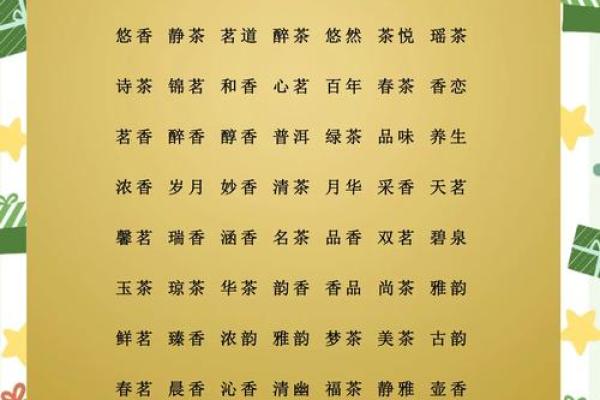 悠香 静茶 茗道 醉茶 悠然 茶悦 瑶茶
诗茶 锦茗 和香 心茗 百年 春茶 香恋
茗香 醉香 醇香 普洱 绿茶 品味 养生
浓香 岁月 妙香 清茶 月华 采香 天茗
馨茗 瑞香 涵香 名茶 品香 双茗 碧泉
玉茶 琼茶 华茶 韵香 香品 尚茶 雅韵
鲜茗 臻香 浓韵 雅韵 梦茶 美茶 古韵
春茗 晨香 沁香 清幽 福茶 静雅 壶香